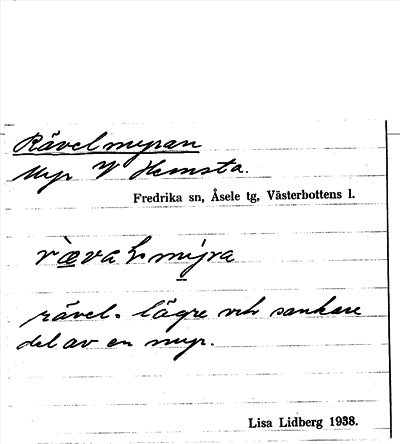 Rävelmyran
Myr V Hemsta.
Fredrika sn, Åsele tg, Västerbottens l.
rævaḷmyra
rävel = lägre och sankare
del av en myr.
Lisa Lidberg 1938.